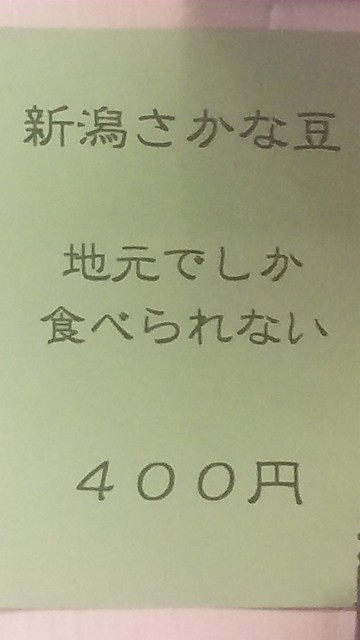 新潟さかな豆
地元でしか
食べられない
４００円